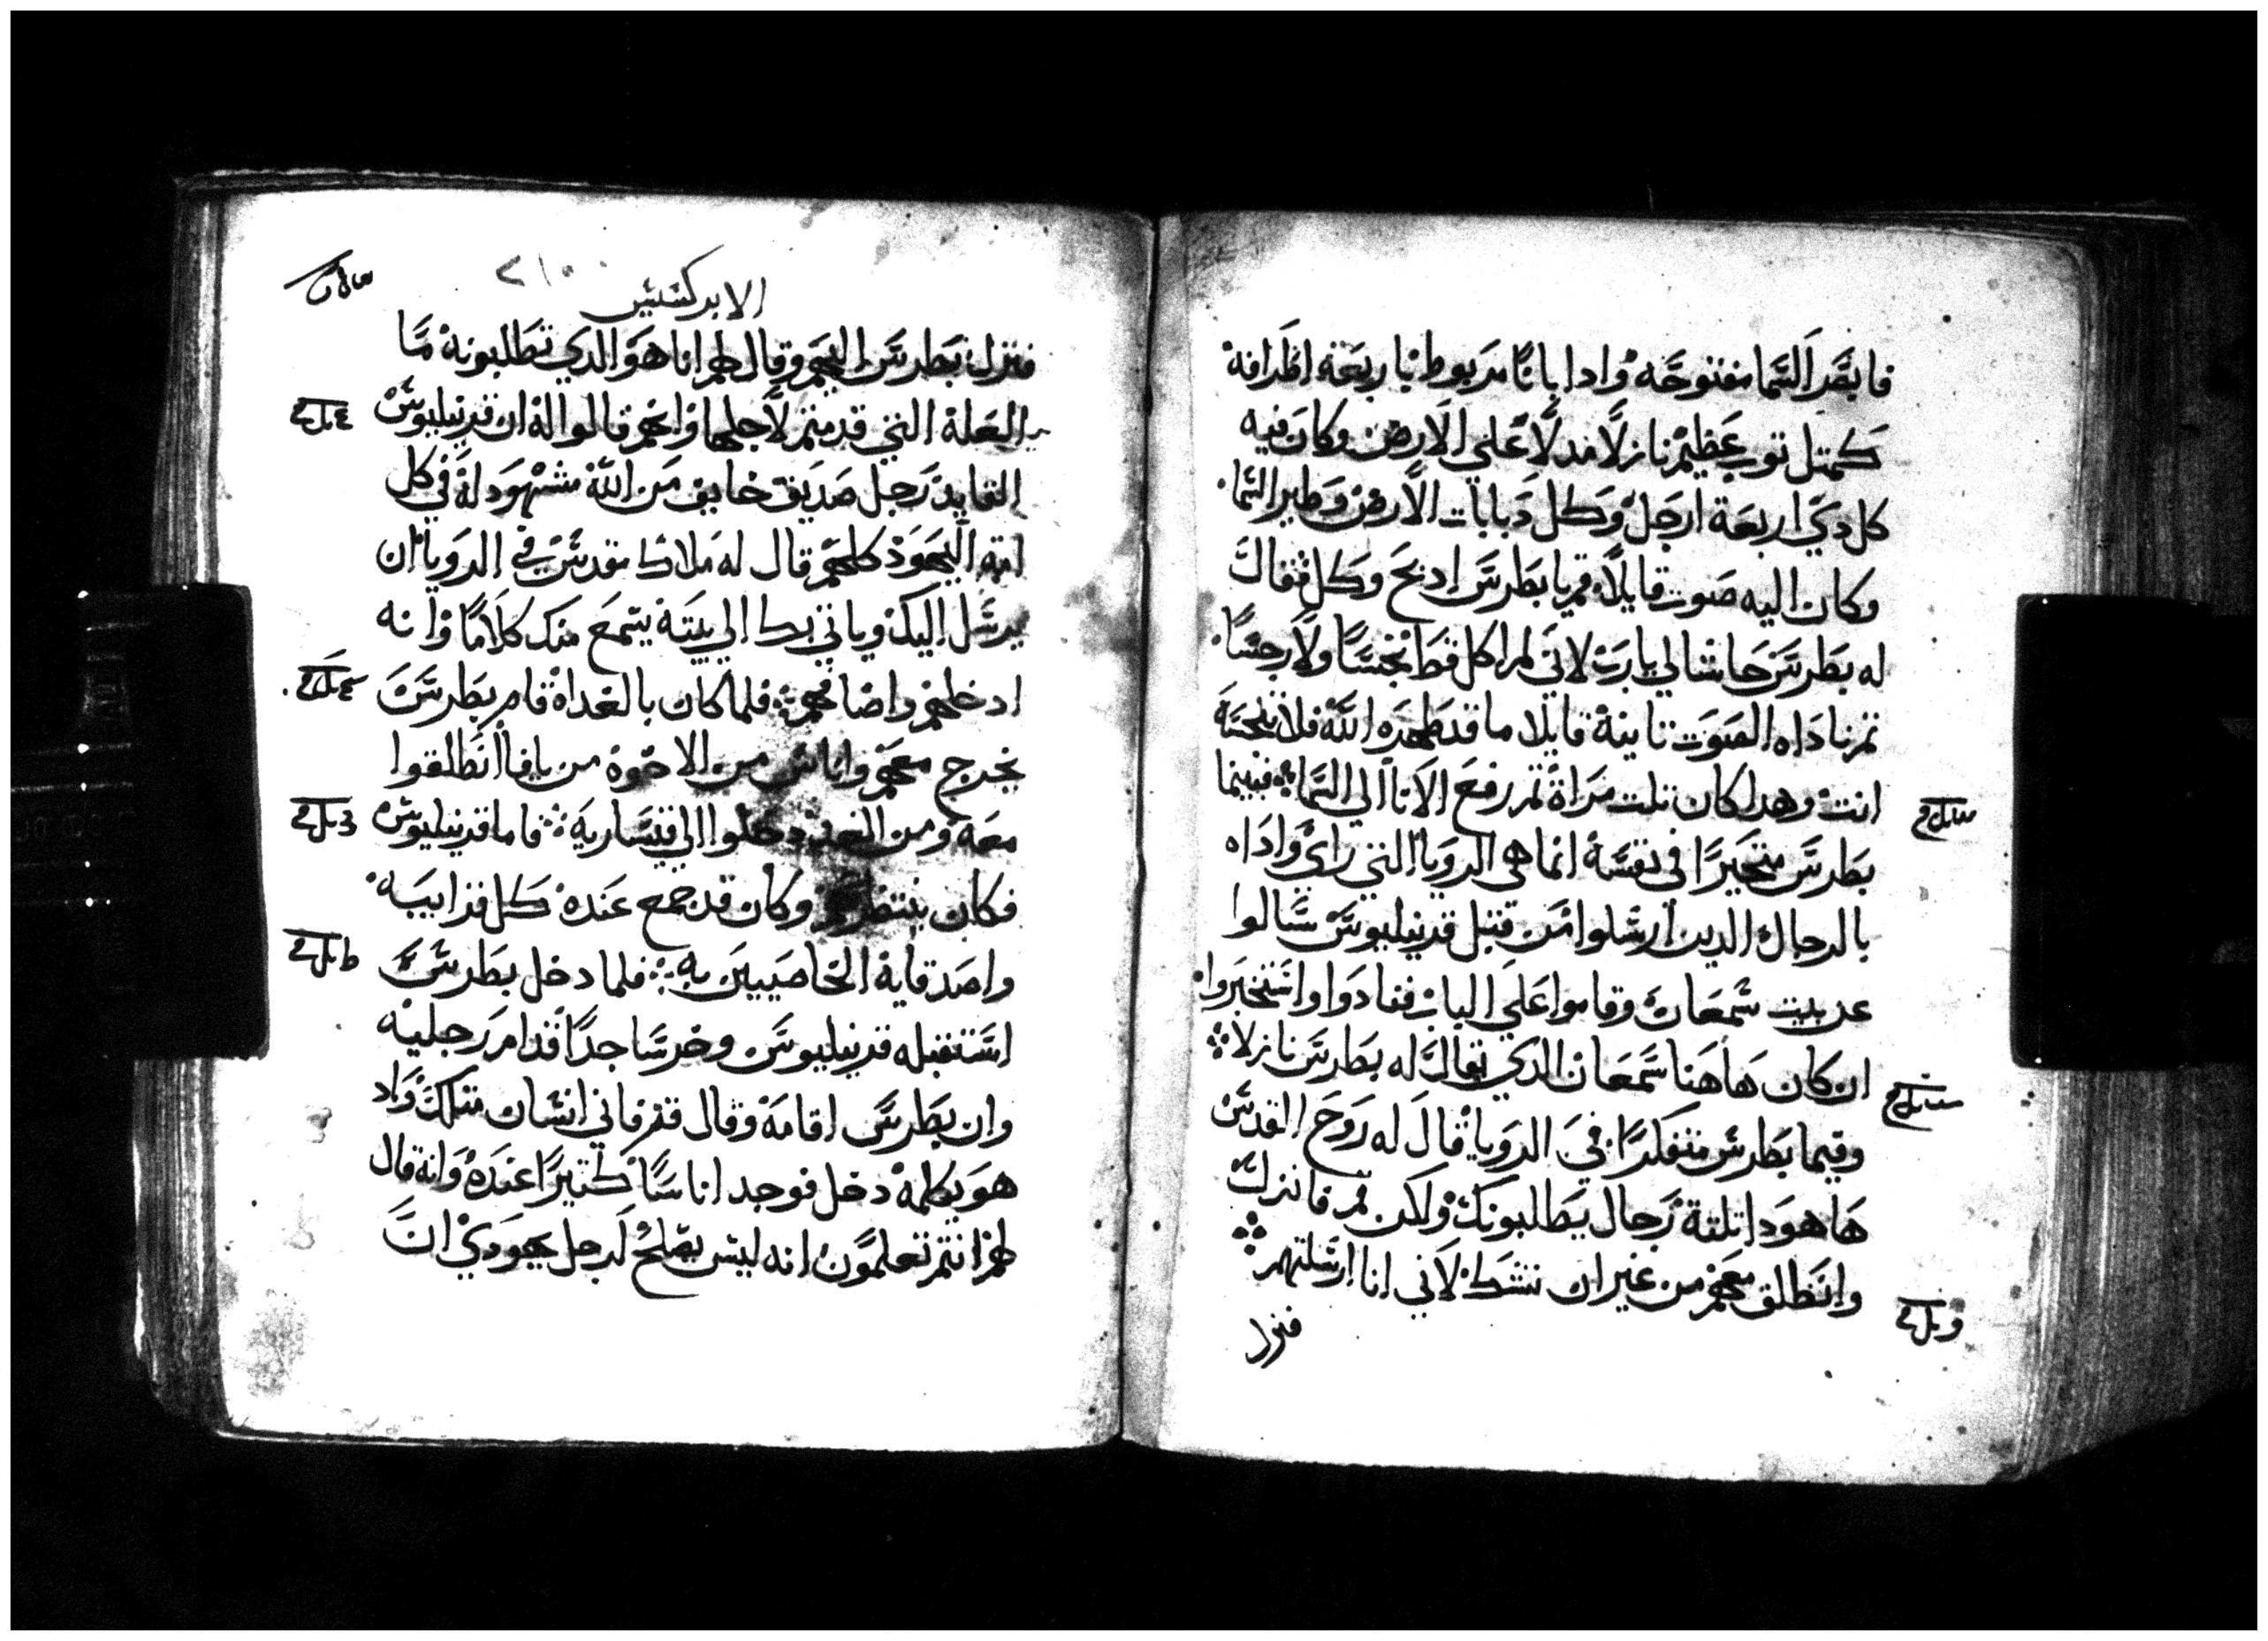 فابصر السما مفتوحه واذا باناً مربوطا باربعة اطرافه
كمتل توب عظيم نازلاً مدلاً علي الارض وكان فيه
كل دي اربعة ارجل وكل دبابات الارض وطير السما
وكان اليه صوت قايلاً قم يا بطرس ادبح وكل فقال
له بطرس حاشا لي يا رب لاني لم اكل قط نجسًا ولا رجسًا
تم ناداه الصوت تانية قايلا ما قد طهره الله فلا تنجسه
انت وهدا كان تلت مراة تم رفع الانا الي السما فبينما
بطرس متحيرًا في نفسه انما هي الرويا التي راي واداه
بالرجال الدين ارسلوا من قبل قرنيليوس سالوا
عن بيت سمعان وقاموا علي الباب فنادوا واستخبروا
ان كان هاهنا سمعان الدي يقال له بطرس نازلا
وفيما بطرس متفكرًا في الرويا قال له روح القدس
ها هودا تلتة رجال يطالبونك ولكن قم فانزل
وانطلق معهم من غير ان تشك لاني انا ارسلتهم
فنزل
الابركسيس
٢١٠
فنزل بطرس اليهم وقال لهم انا هو الدي تطلبونه ما
العلة التي قدمتم لاجلها وانهم قالوا له ان قرنيليوس
القايد رجل صديق خايف من الله مشهود له في كل
امة اليهود كلهم قال له ملاك مقدس في الرويا ان
يرسل اليك وياتي بك الي بيته يسمع منك كلامًا وانه
ادخلهم واضافهم فلما كان بالغداة قام بطرس
يخرج معهم واناس من الاخوة من يافا انطلقوا
معه ومن الغد دخلوا الي قيسارية فاما قرنيليوس
فكان ينتظرهم وكان قد جمع عنده كل قرايبه
واصدقايه الخاصيين به فلما دخل بطرس
استقبله قرنيليوس وخر ساجدًا قدام رجليه
وان بطرس اقامه وقال قم فاني انسان متلك واد
هو يكلمه دخل فوجد اناسًا كتيرًا عنده وانه قال
لهم انتم تعلمون انه ليس يصلح لرجل يهودي ان